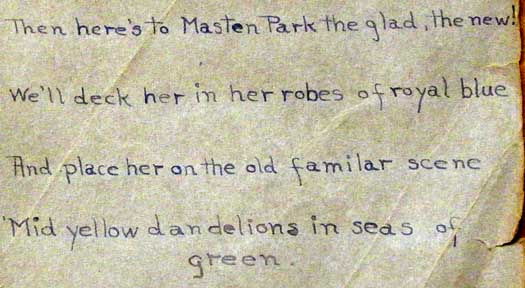 Then here's to Masten Park the glad, the new!
We'll deck her in her robes of royal blue
And place her on the old familar scene
'Mid yellow dandelions in seas of
green.